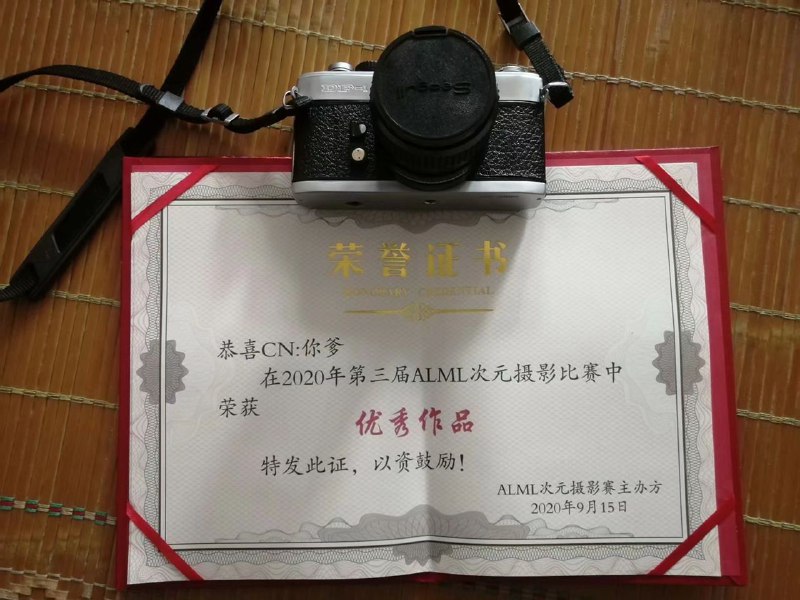 Seagull
DF-1
荣誉证书
HONORARY CREDENTIAL
恭喜CN:你爹
在2020年第三届ALML次元摄影比赛中
荣获
优秀作品
特发此证，以资鼓励!
ALML次元摄影赛主办方
2020年9月15日